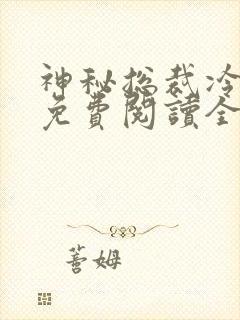 神秘总裁冷
免費閱讀全
蓍姆